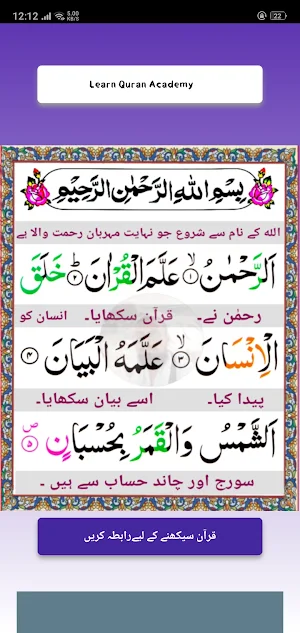 12:12 5.00 KB/S 22
Learn Quran Academy
بِسْمِ اللهِ الرَّحْمٰنِ الرَّحِيْمِ
اللہ کے نام سے شروع جو نہایت مہربان رحمت والا ہے
اَلرَّحْمٰنُ ۙ﴿۱﴾ عَلَّمَ الْقُرْاٰنَ ؕ﴿۲﴾ خَلَقَ
رحمٰن نے۔ قرآن سکھایا۔ انسان کو
الْاِنْسَانَ ۙ﴿۳﴾ عَلَّمَهُ الْبَيَانَ ﴿۴﴾
پیدا کیا۔ اسے بیان سکھایا۔
اَلشَّمْسُ وَالْقَمَرُ بِحُسْبَانٍ ۪ص﴿۵﴾
سورج اور چاند حساب سے ہیں ۔
قرآن سیکھنے کے لیےرابطہ کریں